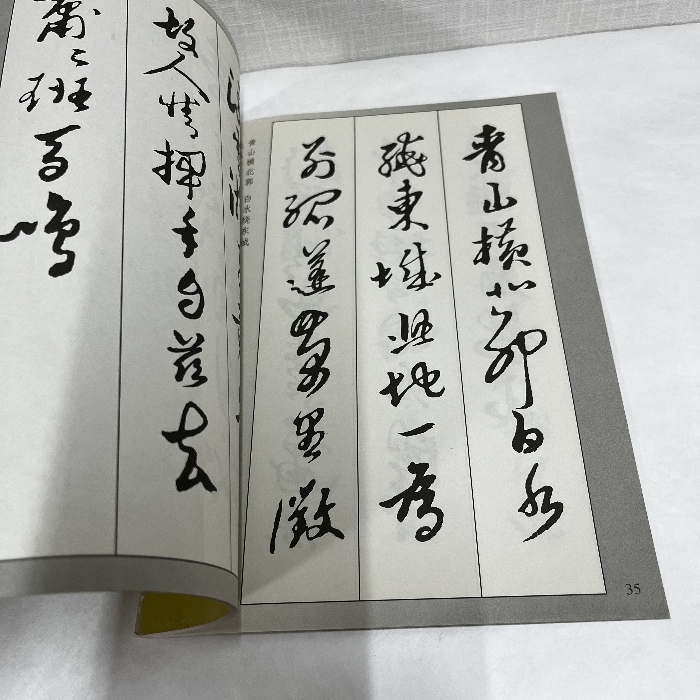 青山横北郭白水
繞東城此地一為
别孤蓬萬里徵
青山横北郭 白水绕东城
35
故人情揮手自兹去
蕭々班馬鳴